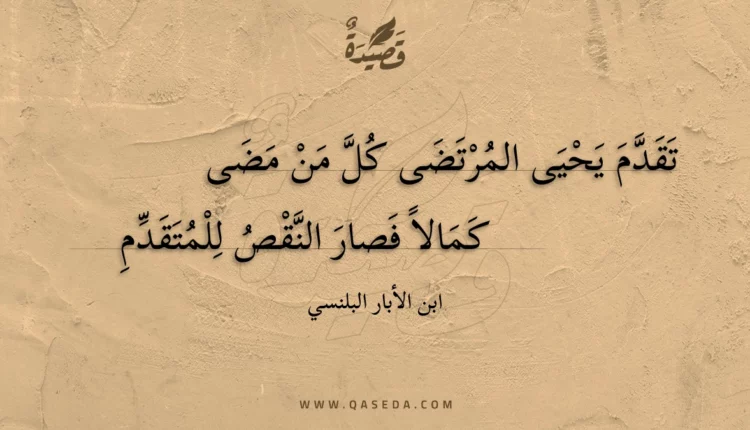 قَصِيْدَةٌ
تَقَدَّمَ يَحْيَى المُرْتَضَى كُلَّ مَنْ مَضَى
كَمَالاً فَصارَ النَّقْصُ لِلْمُتَقَدِّمِ
ابن الأبار البلنسي
WWW.QASEDA.COM